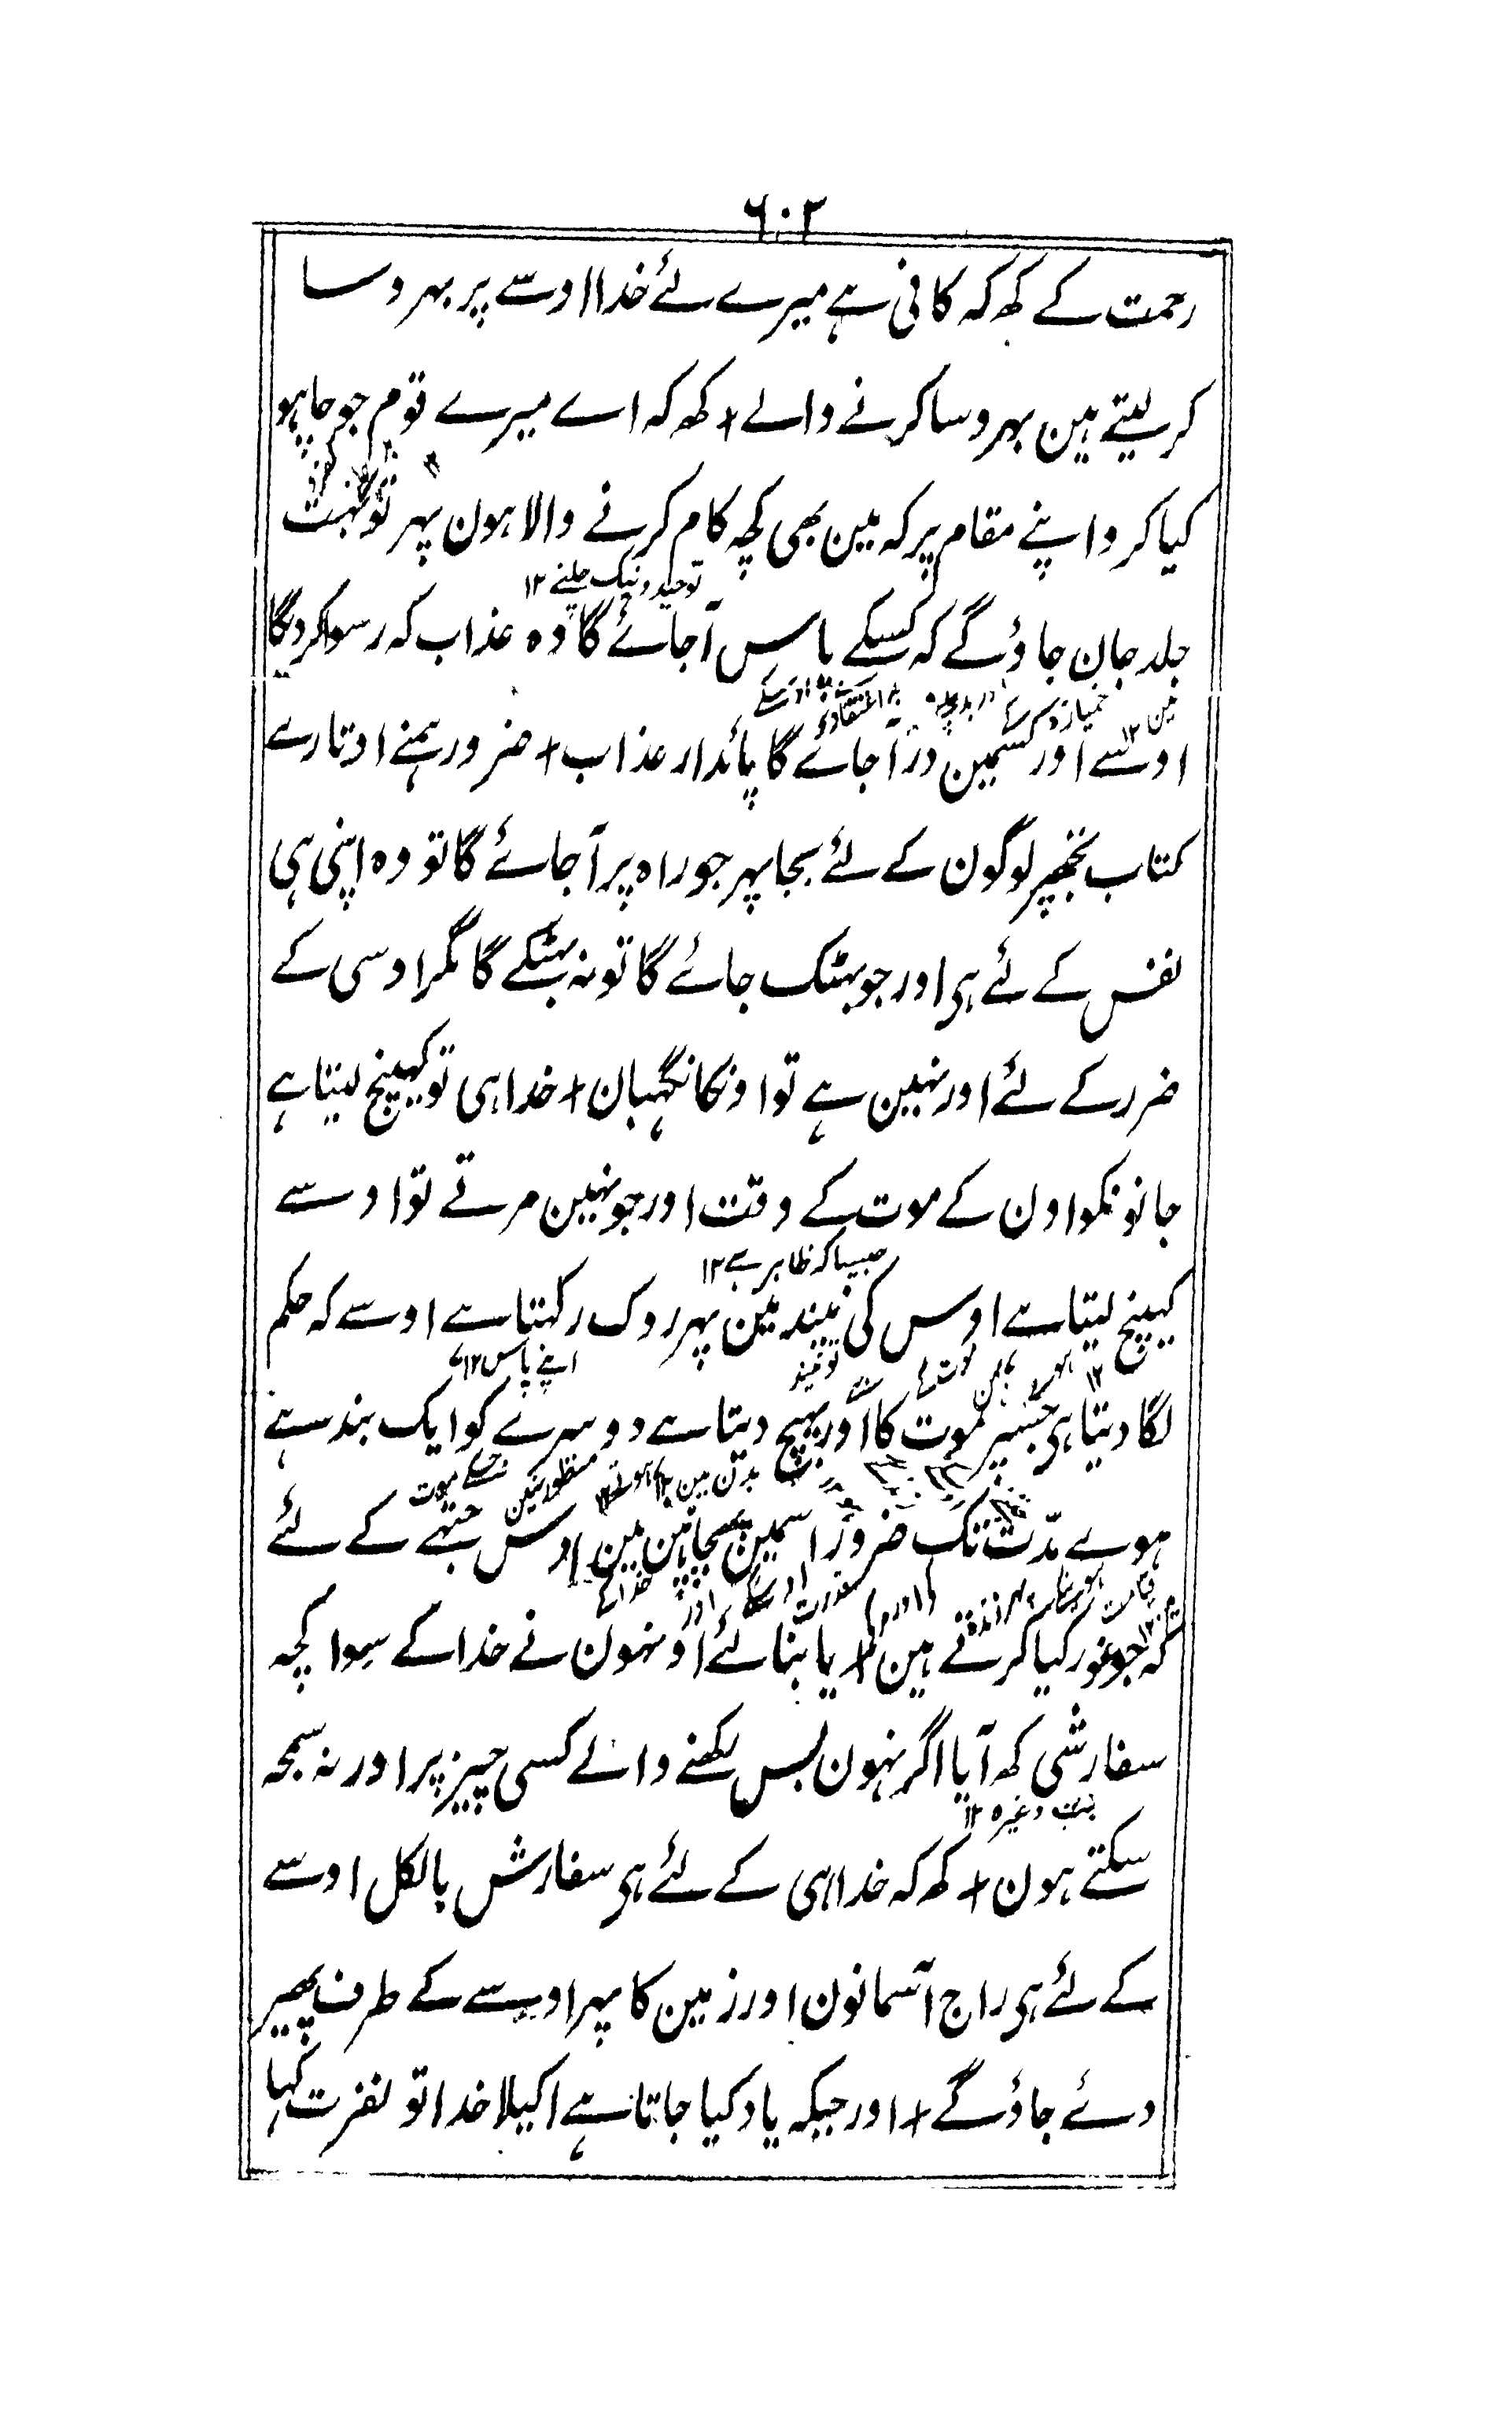 ۶۰۲
رحمت کے کھ کہ کافی ہے میرے لئے خدا اوسے پر بہروسا
کر لیتے ہین بہروسا کرنے والے + کھ کہ اے میرے قوم جو چاہو
کیا کرو اپنے مقام پر کہ مین بھی کچھ کام کرنے والا ہون پہر تو بہت
توحید و نیک چلنے ۱۲
جلد جان جاؤگے کہ کسکے پاس آجائے گا وہ عذاب کہ رسوا کردیگا
اوسے اور کسمین در آجاے گا پائدار عذاب + ضرور ہمنے اوتارے
کتاب تجھپر لوگون کے لئے بجا پہر جو راہ پر آجائے گا تو وہ اپنی ہی
نفس کے لئے ہی اور جو بہٹک جائے گا تو نہ بہٹکے گا مگر اوسی کے
ضرر کے لئے اور نہین ہے تو اونکا نگہبان + خدا ہی تو کہینچ لیتا ہے
جانونکو اون کے موت کے وقت اور جو نہین مرتے تو اوسے
جیسا کہ ظاہر ہے ۱۲
کہینچ لیتا ہے اوس کی نیند مین پہر روک رکہتا ہے اوسے کہ حکم
اپنے پاس ۱۲
لگا دیتا ہی جسپر موت کا اور بہیج دیتا ہے دوسرے کو ایک بندہے
ہوے مدّت تک ضرور اسمین پہچانین ہین اوس جتہے کے لئے
کہ جو غور کیا کرتے ہین + یا بنا لئے اونہون نے خدا کے سوا کچھ
سفارشی کھ آیا اگر نہون بس رکھنے والے کسی چیز پر اور نہ سمجھ
بت وغیرہ ۱۲
سکتے ہون + کھ کہ خدا ہی کے لئے ہی سفارش بالکل اوسے
کے لئے ہی راج آسمانون اور زمین کا پہر اوسے کے طرف پھیر
دئے جاؤگے + اور جبکہ یاد کیا جاتا ہے اکیلا خدا تو نفرت کہا